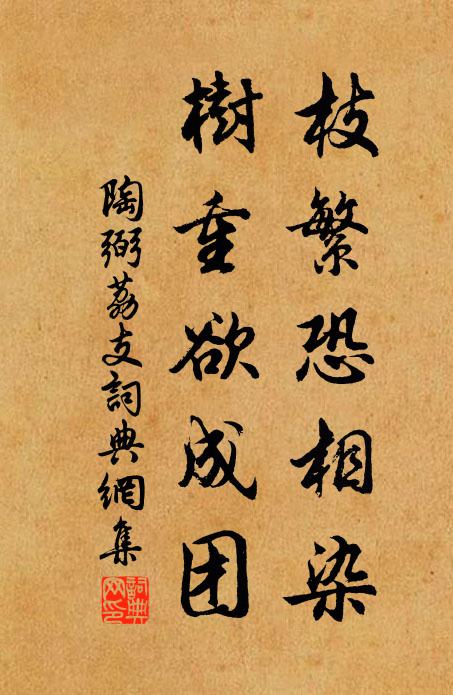 枝繁恐相染
樹重欲成团
陶弼荔支詞典網集
詞典网印